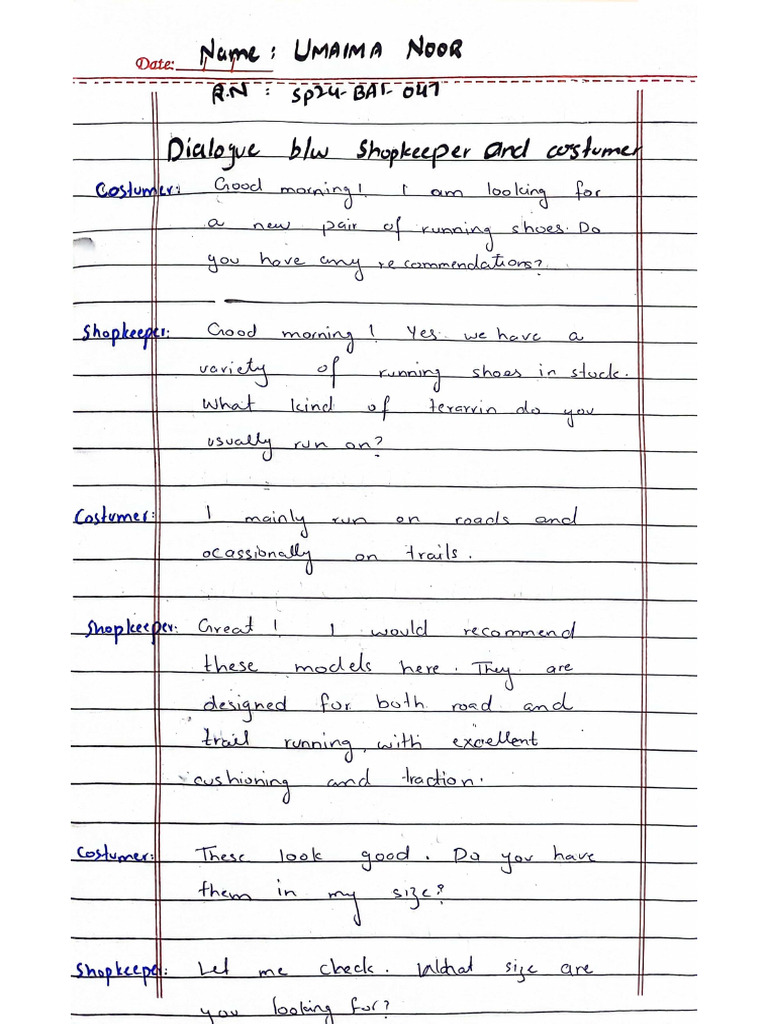 Name: UMAIMA NOOR
Date:
R.N : SP24-BAF-047
Dialogue b/w shopkeeper and costumer
Costumer: Good morning! I am looking for
a new pair of running shoes. Do
you have any recommendations?
Shopkeeper: Good morning! Yes. we have a
variety of running shoes in stock.
What kind of terarrin do you
usually run on?
Costumer: I mainly run on roads and
ocassionally on trails.
Shopkeeper: Great! I would recommend
these models here. They are
designed for both road and
trail running, with excellent
cushioning and traction.
Costumer: These look good. Do you have
them in my size?
Shopkeeper: Let me check. What size are
you looking for?